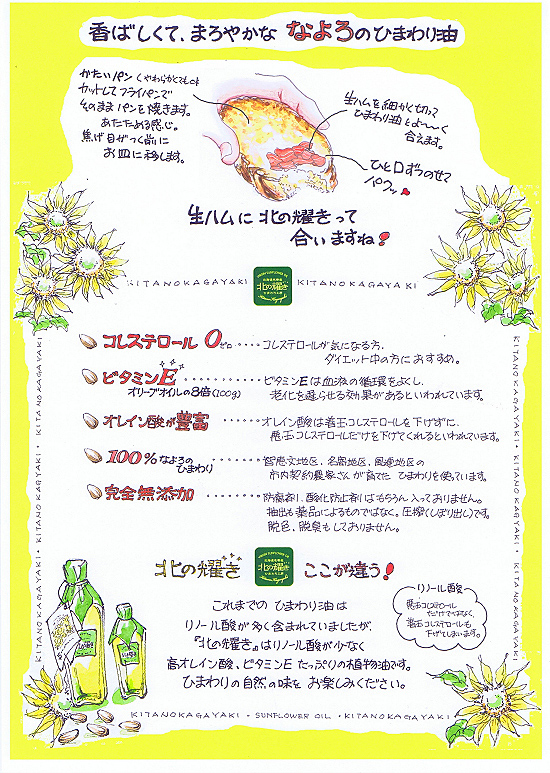 香ばしくて、まろやかな なよろのひまわり油
かたいパン しやわらかくてもOK
カットしてフライパンで
そのままパンを焼きます。
あたためる感じ。
焦げ目がつく前に
お皿に移します。
生ハムを細かく切って
ひまわり油とよ～く
合えます。
ひと口ずつのせて
パクッ
生ハムに北の耀きって
合いますね!
KITANOKAGAYAKI
北の耀き
KITANOKAGAYAKI
コレステロール 0ゼロ ・・・・・コレステロールが気になる方、
ダイエット中の方におすすめ。
ビタミンE ・・・・・・・・ビタミンEは血液の循環をよくし、
オリーブオイルの8倍(100g)
老化を遅らせる効果があるといわれています。
オレイン酸が豊富 ・・・・・・オレイン酸は善玉コレステロールを下げずに、
悪玉コレステロールだけを下げてくれるといわれています。
100%なよろのひまわり ・・・・・智恵文地区、名寄地区、風連地区の
市内契約農家さんが育てた ひまわりを使っています。
完全無添加 ・・・・・・防腐剤、酸化防止剤はもちろん入っておりません。
抽出も薬品によるものではなく、圧搾(しぼり出し)です。
脱色、脱臭もしておりません。
北の耀き
北の耀き
ここが違う!
これまでの ひまわり油は
リノール酸が多く含まれていましたが、
『北の耀き』はリノール酸が少なく
高オレイン酸、ビタミンE たっぷりの植物油です。
ひまわりの自然の味を お楽しみください。
リノール酸
悪玉コレステロール
だけでなく、
善玉コレステロールも
下げてしまいます。
KITANOKAGAYAKI・KITANO KAGAYAKI・KITANO KAGAYAKI
KITANOKAGAYAKI・KITANOKAGAYAKI・KITANOKAGAYAKI
KITANOKAGAYAKI・SUNFLOWER OIL・KITANOKAGAYAKI